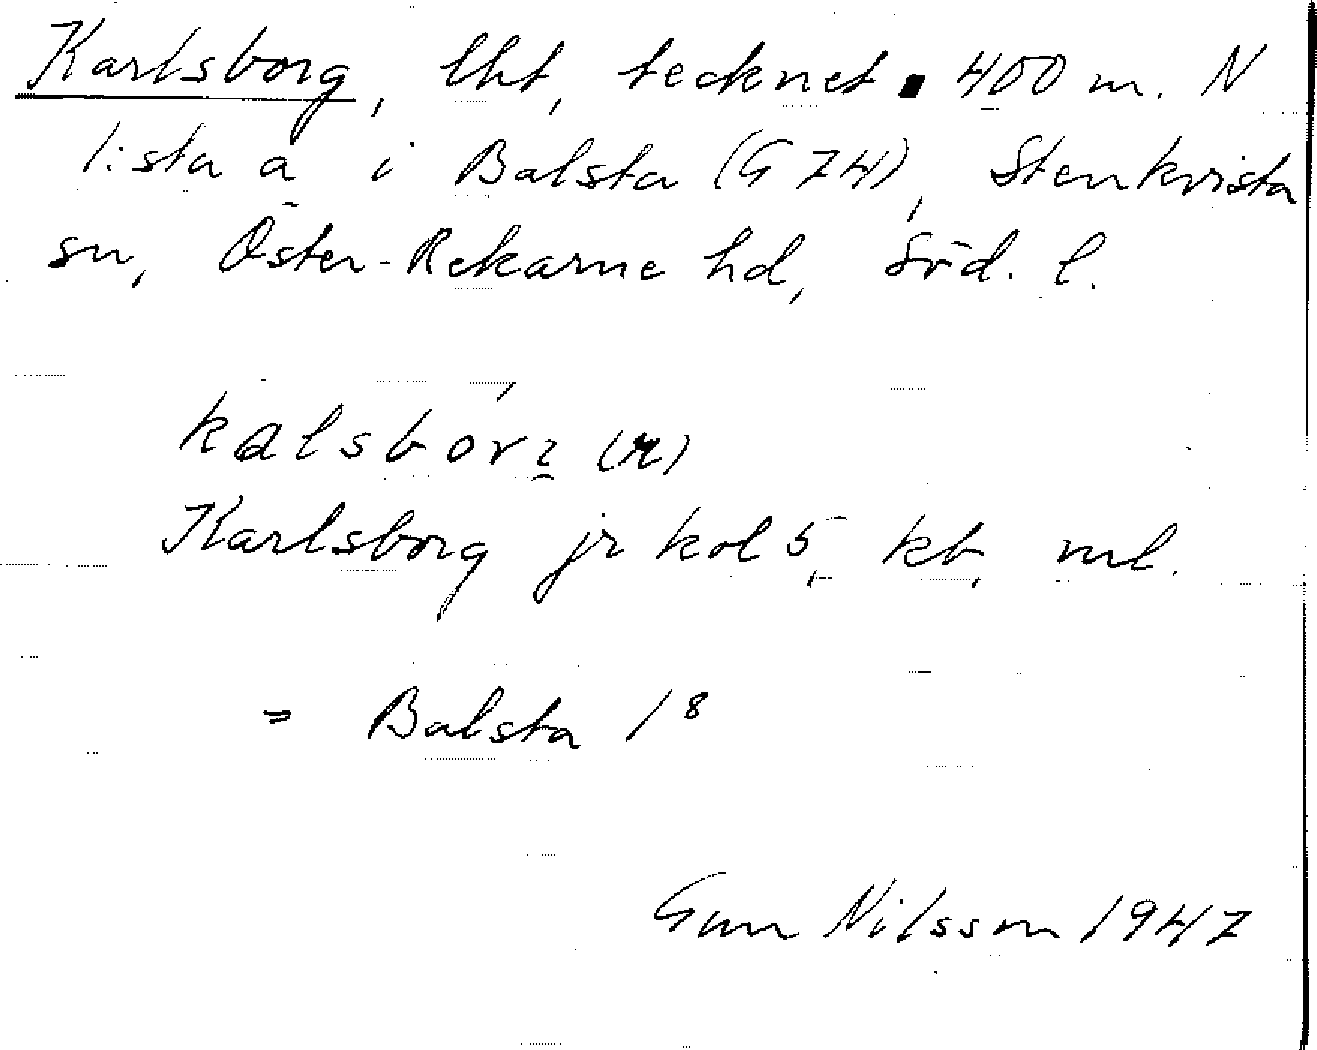 Karlsborg, lht, tecknet ▪ 400 m. N
1:sta a i Balsta (G 74), Stenkvista
sn, Öster-Rekarne hd, Söd. l.
kalsbórj (r)
Karlsborg jr kol 5, kb, ml.
= Balsta 1⁸
Gun Nilsson 1947